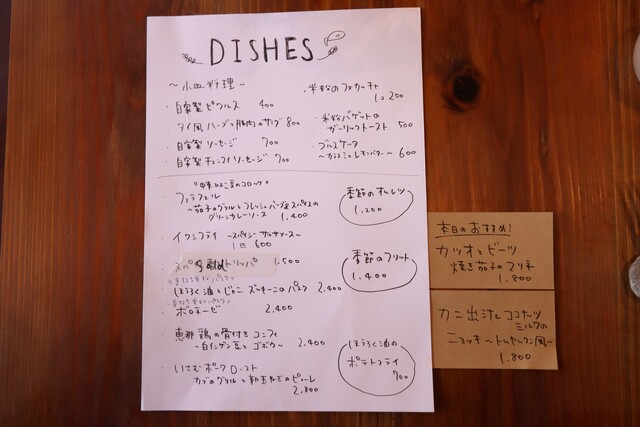 DISHES
～小皿料理～
・自家製ピクルス 400
・タイ風ハーブと豚肉のサラダ 800
・自家製ソーセージ 700
・自家製チェンマイソーセージ 700
・米粉のフォカッチャ
1コ 200
・米粉バゲットの
ガーリックトースト 500
・ブルスケッタ
～カラスミとレモンバター～ 600
"中東ひよこ豆のコロッケ"
・ファラフェル
～茄子のグリルとフレッシュハーブ、スパイスの
グリーンカレーソース 1,400
・イワシフライ ～スパイシーサルサソース～
1匹 600
トリッパ 1,500
・ほうろく油とじゃこ、ズッキーニのパスタ 2,400
・ボロネーゼ 2,400
・恵那鶏の骨付きコンフィ
～白インゲン豆とゴボウ～ 2,400
・いさむポークロースト
カブのグリルと新玉ねぎのピューレ
2,800
季節のオムレツ
1,200
季節のフリット
1,400
ほうろく油の
ポテトフライ
700
本日のおすすめ!
カツオとビーツ
焼き茄子のマリネ
1,800
カニ出汁とココナッツ
ミルクの
ニョッキ～トムヤムクン風～
1,800